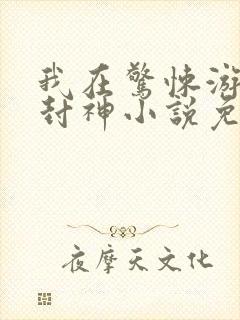 我在驚悚游
封神小說免
夜摩天文化